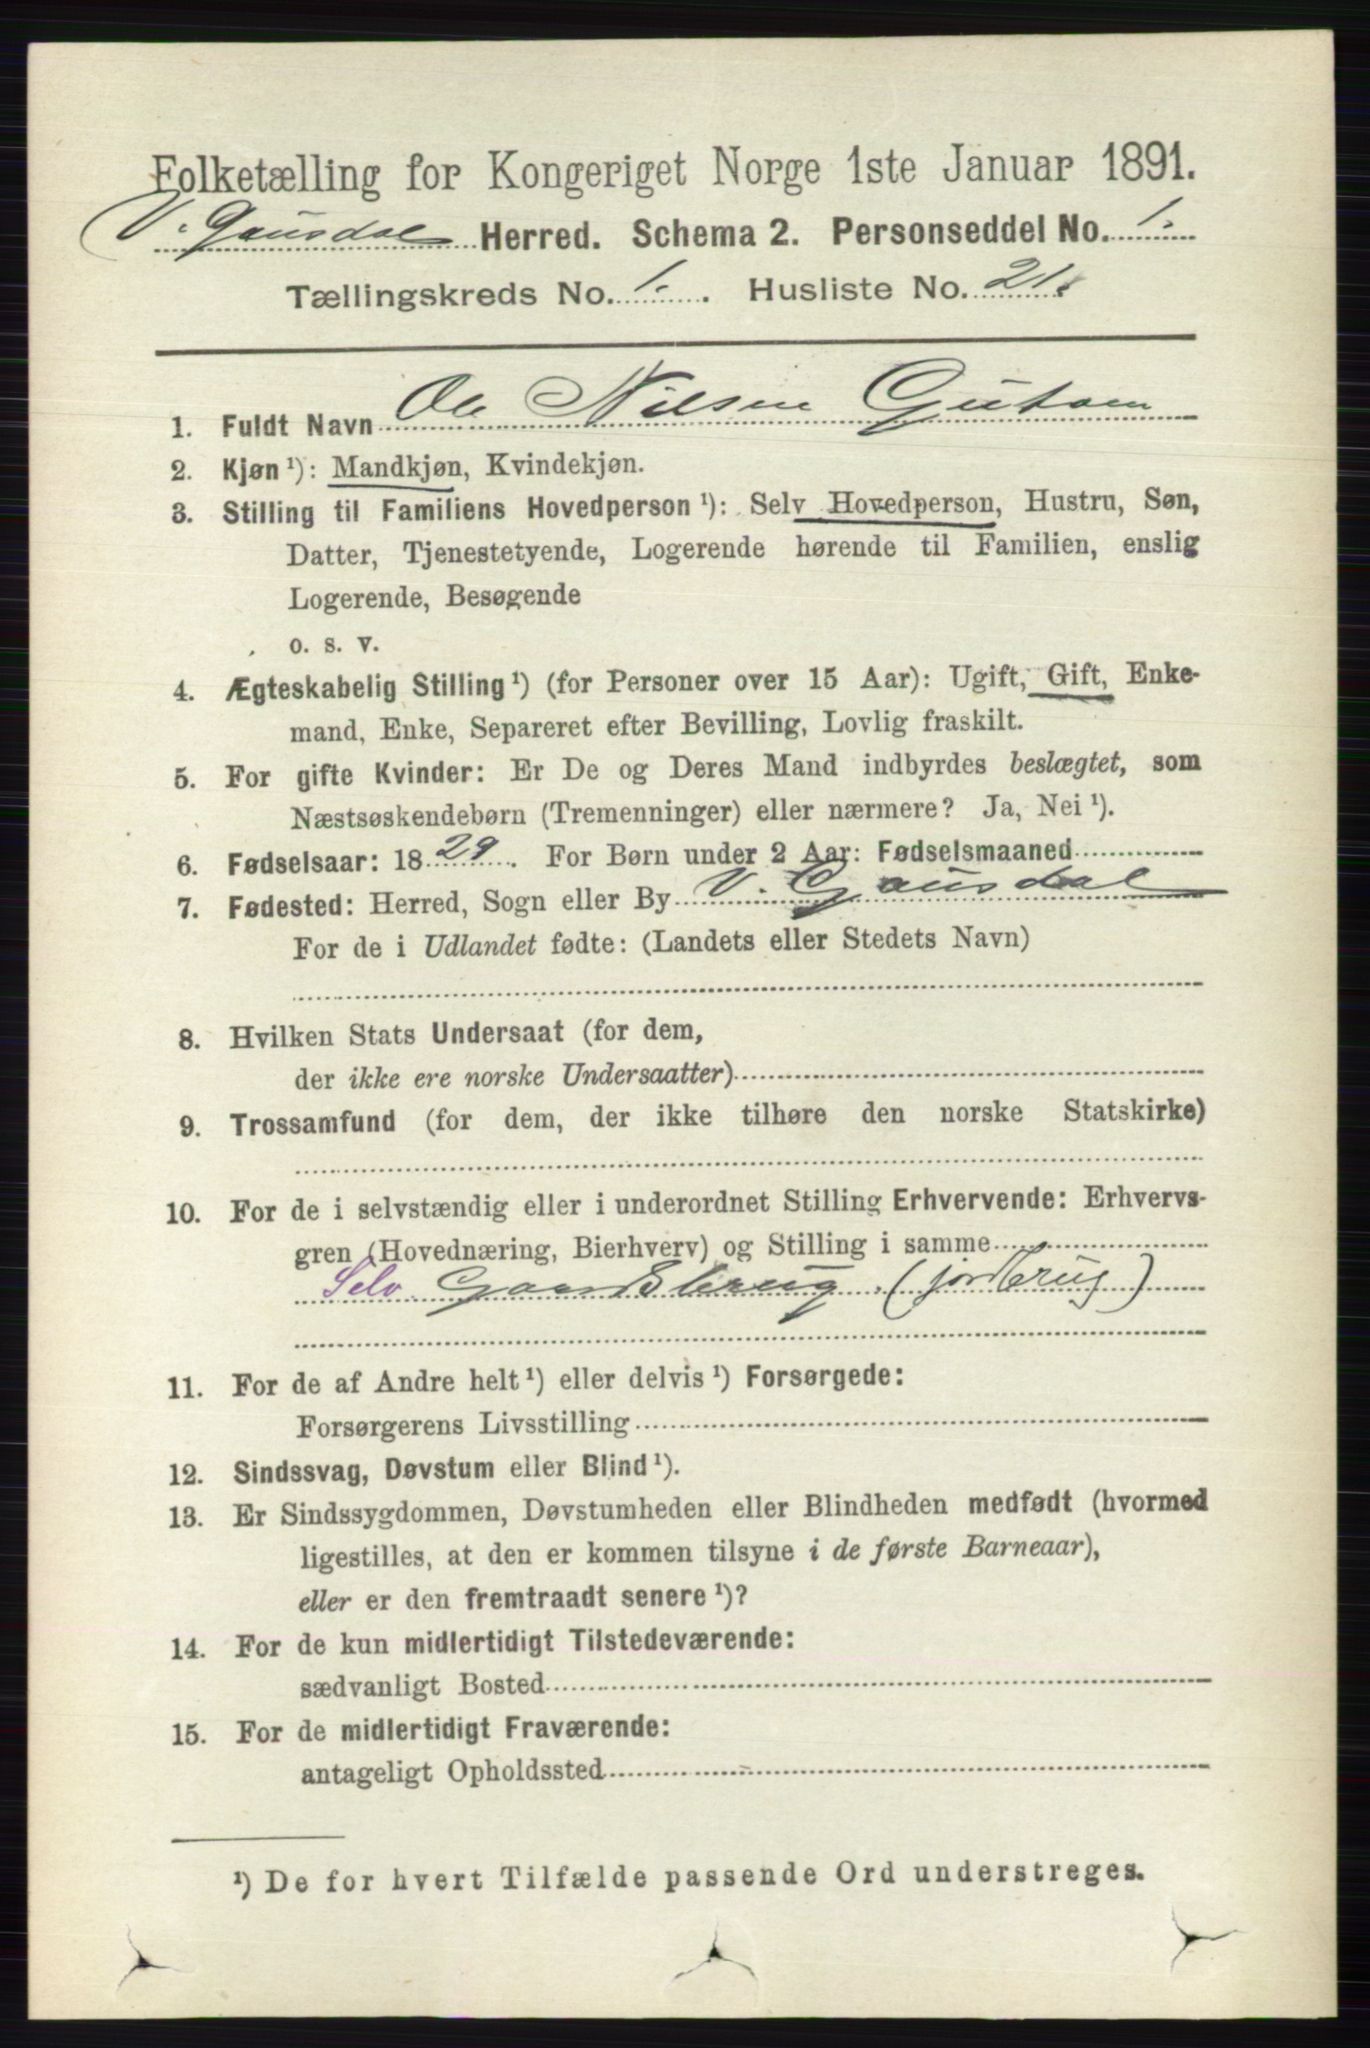 Folketælling for Kongeriget Norge 1ste Januar 1891.
V. Gausdal Herred. Schema 2. Personseddel No. 1.
Tællingskreds No. 1. Husliste No. 21.
1. Fuldt Navn Ole Nilsen
2. Kjøn ¹): Mandkjøn, Kvindekjøn.
3. Stilling til Familiens Hovedperson ¹): Selv Hovedperson, Hustru, Søn,
Datter, Tjenestetyende, Logerende hørende til Familien, enslig
Logerende, Besøgende
o. s. v.
4. Ægteskabelig Stilling ¹) (for Personer over 15 Aar): Ugift, Gift, Enke-
mand, Enke, Separeret efter Bevilling, Lovlig fraskilt.
5. For gifte Kvinder: Er De og Deres Mand indbyrdes beslægtet, som
Næstsøskendebørn (Tremenninger) eller nærmere? Ja, Nei ¹).
6. Fødselsaar: 1829. For Børn under 2 Aar: Fødselsmaaned
7. Fødested: Herred, Sogn eller By V. Gausdal
For de i Udlandet fødte: (Landets eller Stedets Navn)
8. Hvilken Stats Undersaat (for dem,
der ikke ere norske Undersaatter)
9. Trossamfund (for dem, der ikke tilhøre den norske Statskirke)
10. For de i selvstændig eller i underordnet Stilling Erhvervende: Erhvervs-
gren (Hovednæring, Bierhverv) og Stilling i samme
Selv. Gaardsbrug. (jordbrug)
11. For de af Andre helt ¹) eller delvis ¹) Forsørgede:
Forsørgerens Livsstilling
12. Sindssvag, Døvstum eller Blind ¹).
13. Er Sindssygdommen, Døvstumheden eller Blindheden medfødt (hvormed
ligestilles, at den er kommen tilsyne i de første Barneaar),
eller er den fremtraadt senere ¹)?
14. For de kun midlertidigt Tilstedeværende:
sædvanligt Bosted
15. For de midlertidigt Fraværende:
antageligt Opholdssted
¹) De for hvert Tilfælde passende Ord understreges.